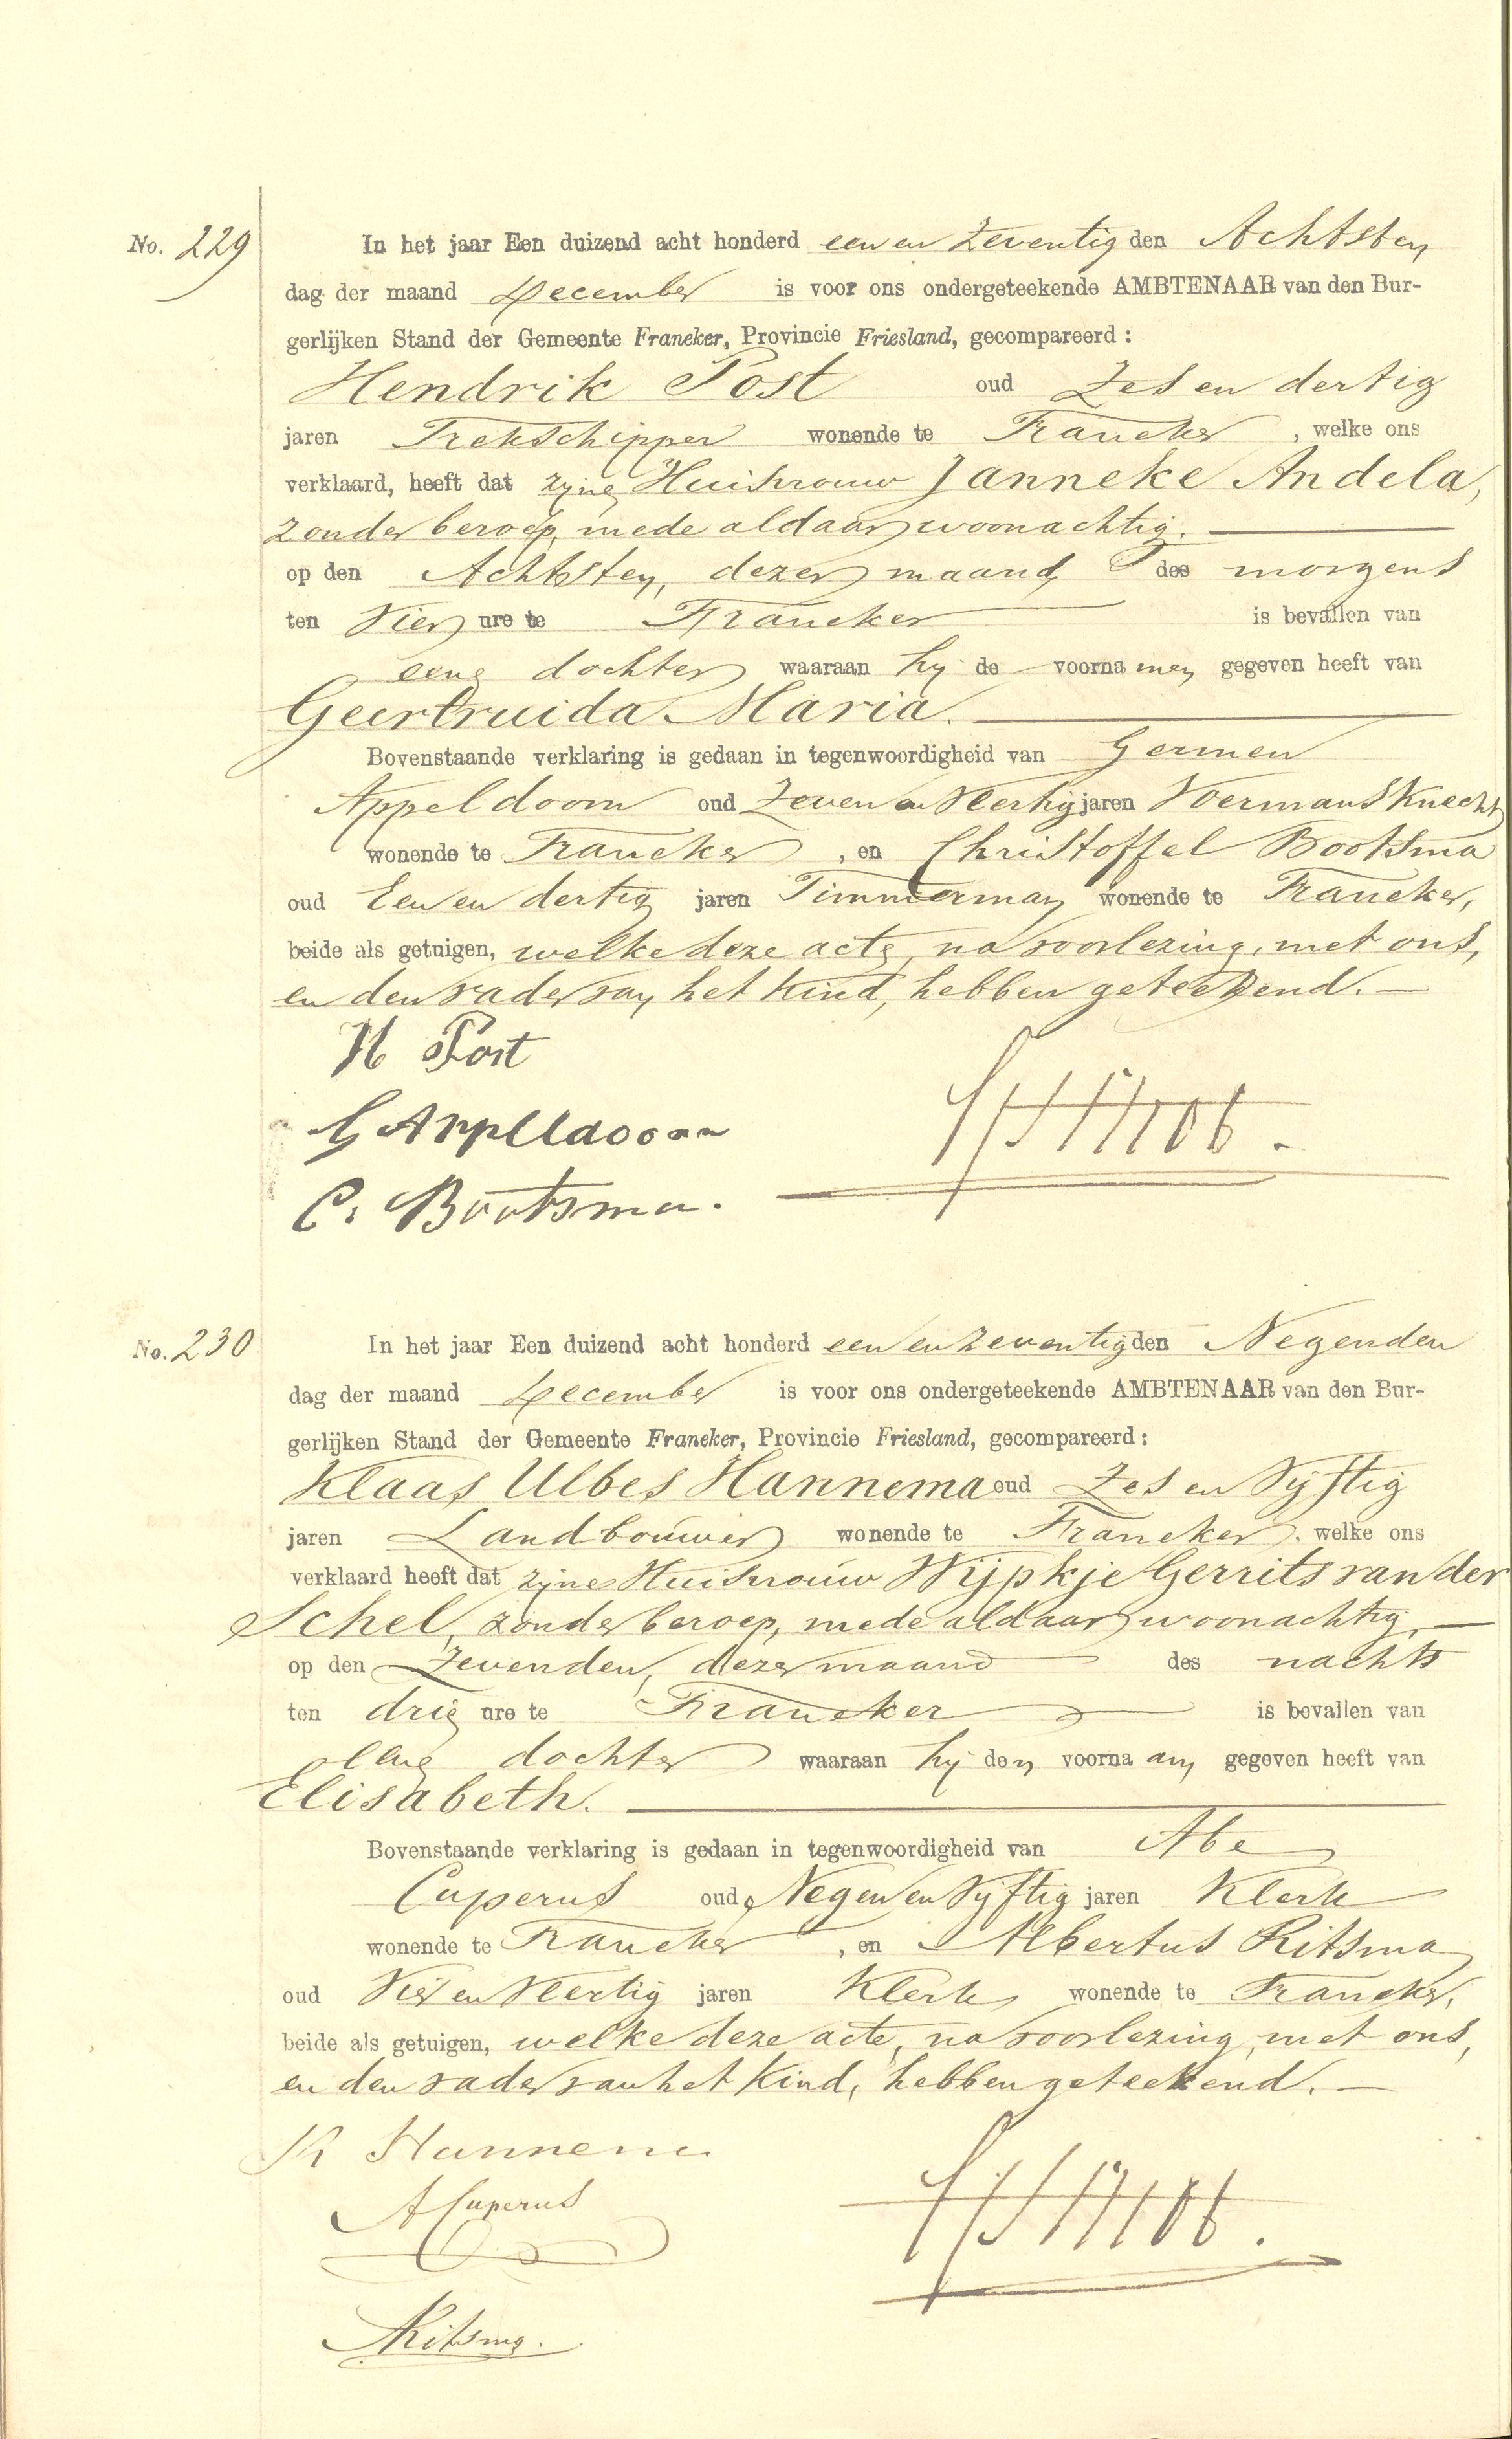 No. 229
In het jaar Een duizend acht honderd een en zeventig den Achtsten
dag der maand December is voor ons ondergeteekende AMBTENAAR van den Bur-
gerlijken Stand der Gemeente Franeker, Provincie Friesland, gecompareerd:
Hendrik Post oud Zes en dertig
jaren Trekschipper wonende te Franeker, welke ons
verklaard, heeft dat zijne Huisvrouw Janneke Andela,
zonder beroep, mede aldaar woonachtig.
op den Achtsten, dezer maand, des morgens
ten Vier ure te Franeker is bevallen van
eene dochter waaraan hij de voornamen gegeven heeft van
Geertruida Maria.
Bovenstaande verklaring is gedaan in tegenwoordigheid van Germen
Appeldoorn oud Zeven en Veertig jaren Voermans Knecht
wonende te Franeker, en Christoffel Bootsma
oud Een en dertig jaren Timmerman wonende te Franeker,
beide als getuigen, welke deze acte, na voorlezing, met ons,
en den vader van het Kind, hebben geteekend.
H Post
G Appeldoorn
C. Bootsma.
No. 230
In het jaar Een duizend acht honderd een en zeventig den Negenden
dag der maand December is voor ons ondergeteekende AMBTENAAR van den Bur-
gerlijken Stand der Gemeente Franeker, Provincie Friesland, gecompareerd:
Klaas Ulbes Hannema oud Zes en Vijftig
jaren Landbouwer wonende te Franeker, welke ons
verklaard heeft dat zijne Huisvrouw Wijpkje Gerrits van der
Schel, zonder beroep, mede aldaar woonachtig,
op den Zevenden, dezer maand des nachts
ten drie ure te Franeker is bevallen van
eene dochter waaraan hij den voornaam gegeven heeft van
Elisabeth.
Bovenstaande verklaring is gedaan in tegenwoordigheid van Abe
Cuperus oud Negen en Vijftig jaren Klerk
wonende te Franeker, en Albertus Ritsma
oud Vier en Veertig jaren Klerk wonende te Franeker,
beide als getuigen, welke deze acte, na voorlezing, met ons,
en den vader van het Kind, hebben geteekend.
K Hannema
A Cuperus
ARitsma.